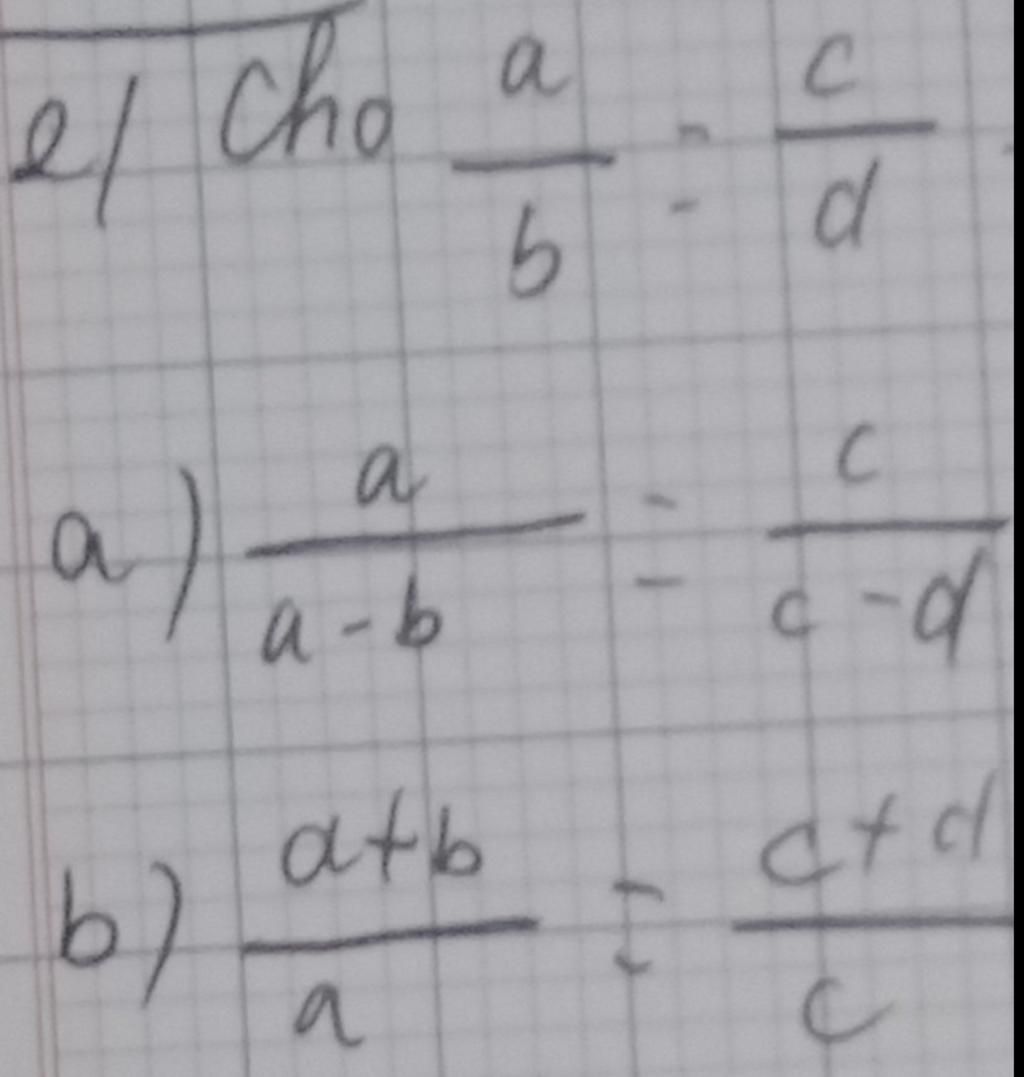 2/ Cho a/b = c/d
a) a/(a-b) = c/(c-d)
b) (a+b)/a = (c+d)/c